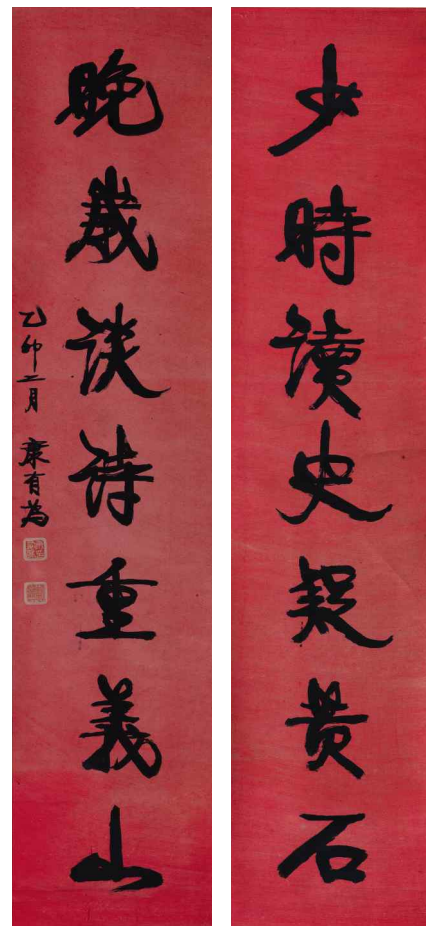 少時讀史疑黃石
晚歲談詩重義山
乙卯二月 康有為